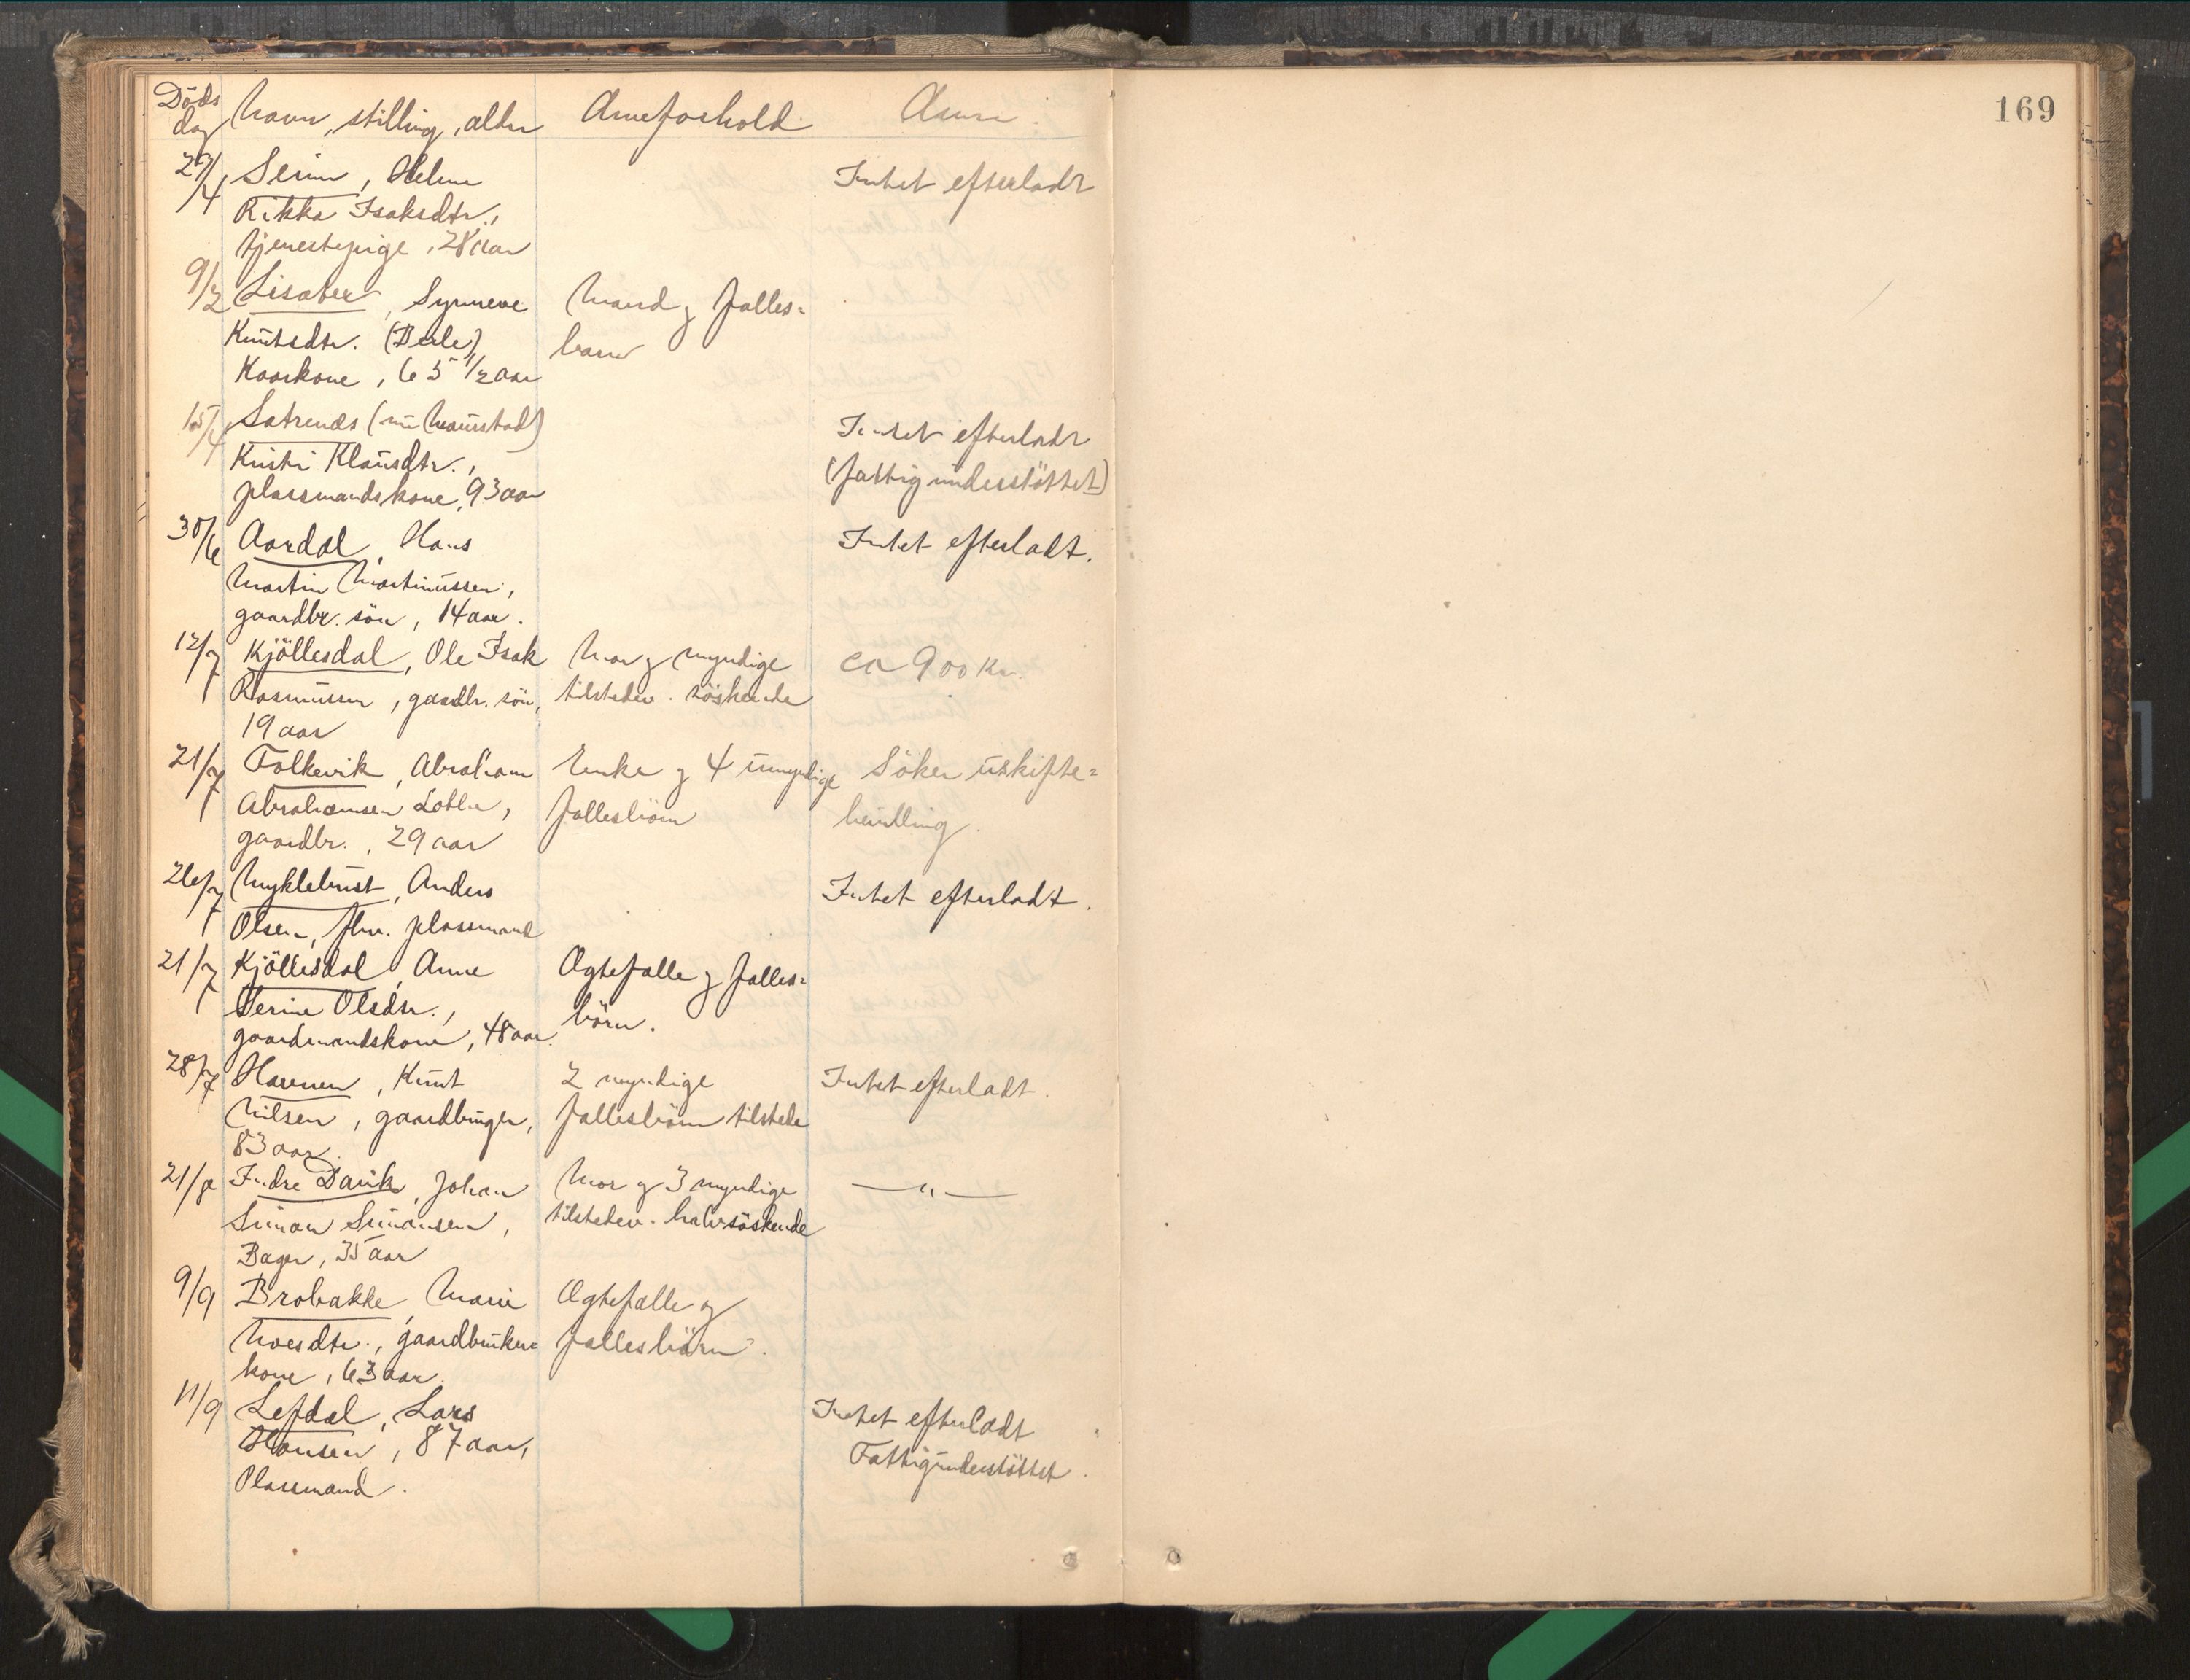 Döds
dag
Navn, stilling, alder
Arveforhold
Anm:
169
29/4
Seim, Helene
Rikka Isaksdtr.,
tjenestepige, 28 aar
Intet efterladt
9/2
Lisaber, Synneve
Knutsdtr. (Berle)
Kaarkone, 65 1/2 aar
Mand og fælles=
barn
15/4
Satrenæs (nu Maurstad)
Kristi Klausdtr.,
plassmandskone, 93 aar
Intet efterladt
(fattigunderstöttet)
30/6
Aardal, Hans
Martin Martinussen,
gaardbr. sön, 14 aar.
Intet efterladt.
12/7
Kjöllesdal, Ole Isak
Rasmussen, gaardbr. sön,
19 aar
Mor og myndige
tilstedev. söskende
ca 900 Kr.
21/7
Folkevik, Abraham
Abrahamsen,
gaardbr., 29 aar
Enke og 4 umyndige
fællesbörn
Söker uskifte=
bevilling.
26/7
Myklebust, Anders
Olsen, fhv. plassmand
Intet efterladt.
21/7
Kjöllesdal, Anne
Serine Olsdtr.,
gaardmandskone, 48 aar.
Ægtefælle og fælles=
börn.
28/7
Havnen, Knut
Nilsen, gaardbruger,
83 aar.
2 myndige
fællesbörn tilstede
Intet efterladt.
21/8
Indre Davik, Johan
Simon Simonsen,
Bager, 35 aar
Mor og 3 myndige
tilstedev. halvsöskende
— " —
9/9
Brobakke, Marie
Moesdtr., gaardbruker=
kone, 63 aar.
Ægtefælle og
fællesbörn.
11/9
Lefdal, Lars
Hansen, 87 aar,
Plassmand.
Intet efterladt
Fattigunderstöttet.